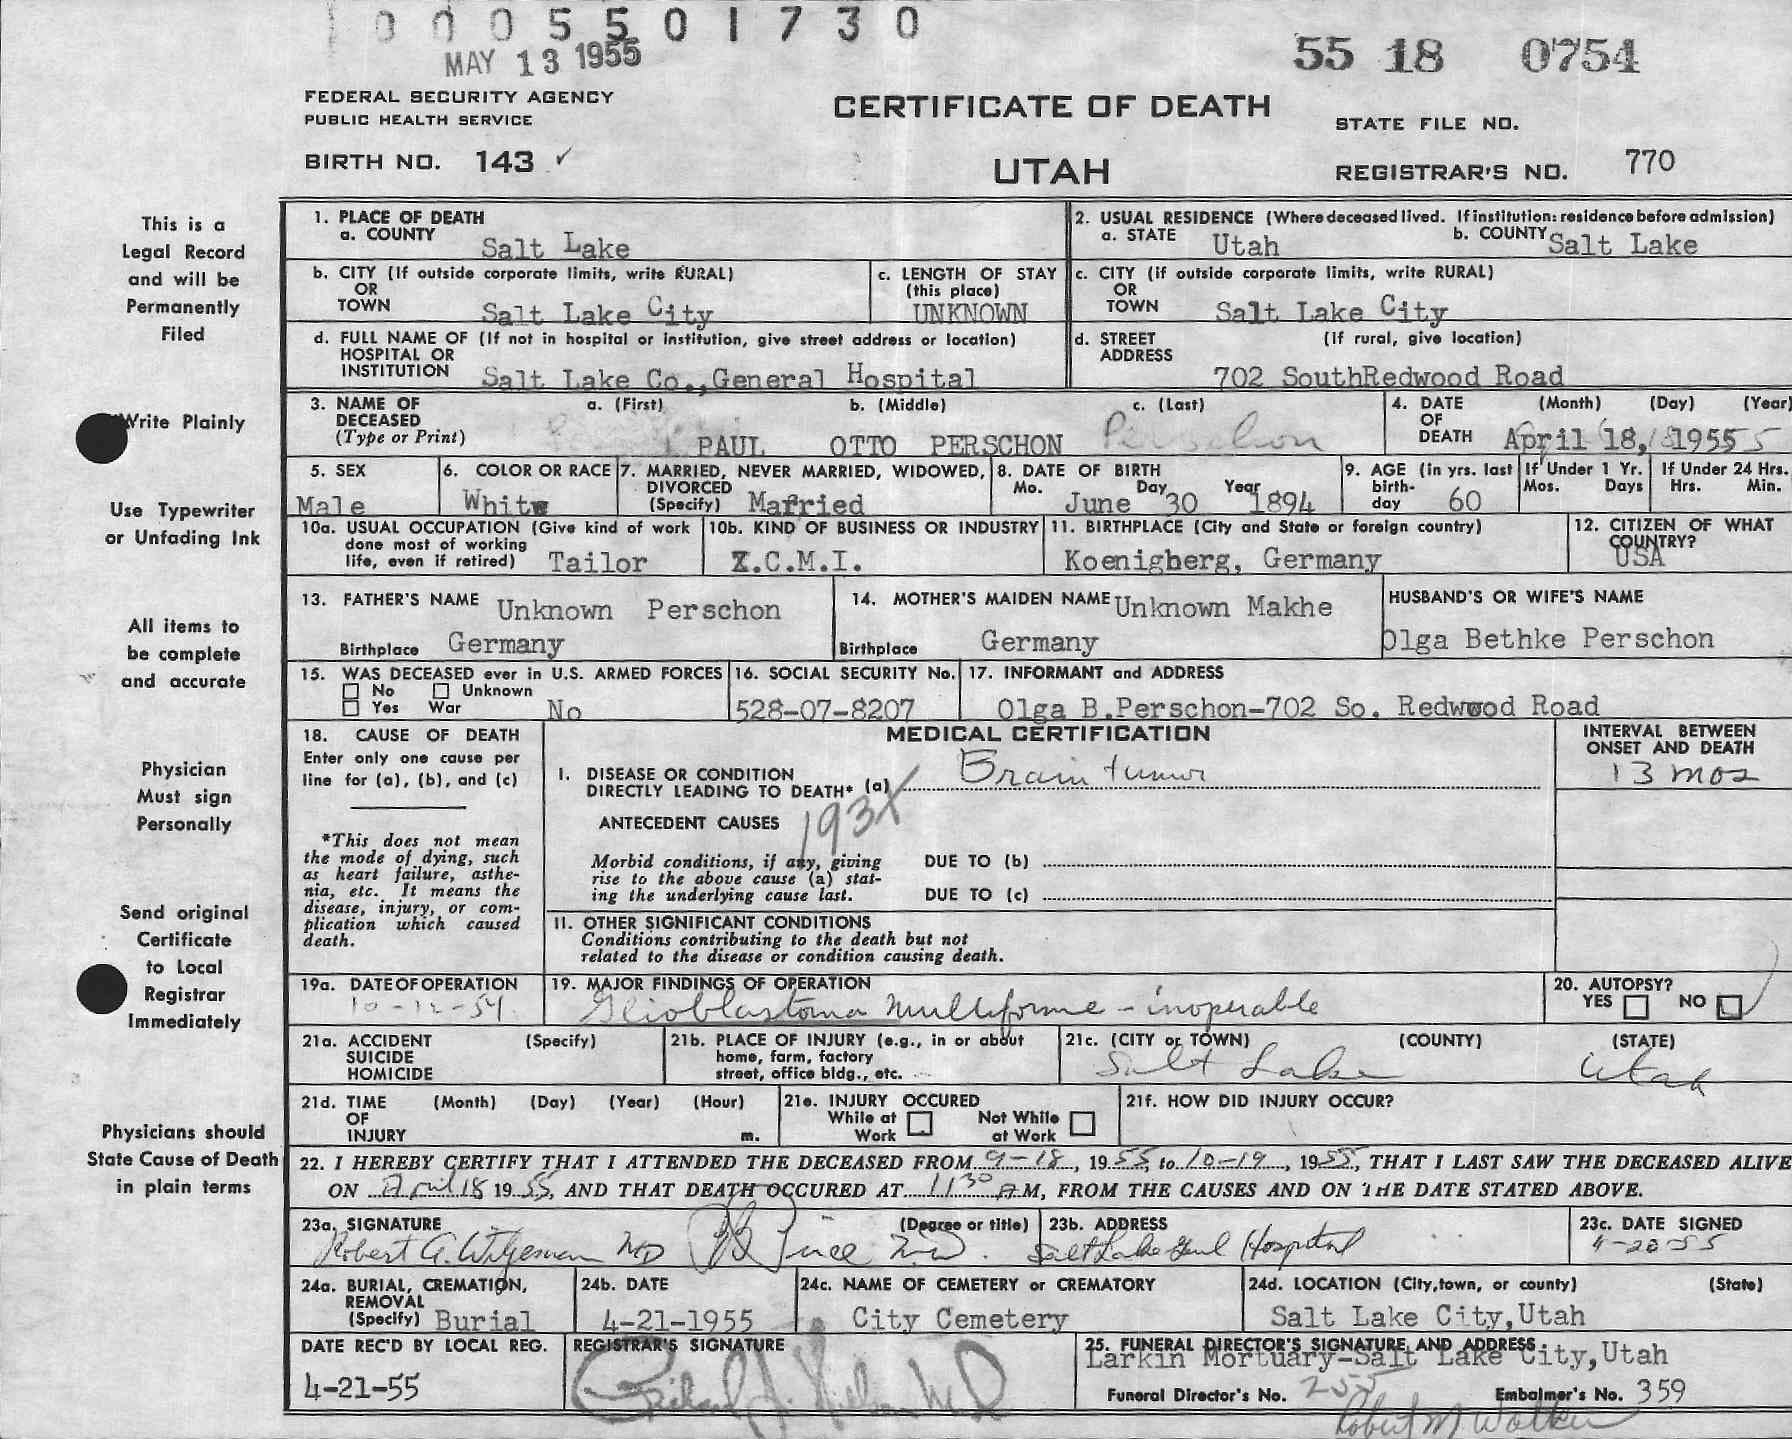 0 0 0 5 5 0 1 7 3 0
MAY 13 1955
55 18 0754
FEDERAL SECURITY AGENCY
PUBLIC HEALTH SERVICE
CERTIFICATE OF DEATH
STATE FILE NO.
BIRTH NO. 143 ✓
UTAH
REGISTRAR'S NO. 770
This is a
Legal Record
and will be
Permanently
Filed
Write Plainly
Use Typewriter
or Unfading Ink
All items to
be complete
and accurate
Physician
Must sign
Personally
Send original
Certificate
to Local
Registrar
Immediately
Physicians should
State Cause of Death
in plain terms
1. PLACE OF DEATH
a. COUNTY Salt Lake
2. USUAL RESIDENCE (Where deceased lived. If institution: residence before admission)
a. STATE Utah b. COUNTY Salt Lake
b. CITY (If outside corporate limits, write RURAL)
OR
TOWN Salt Lake City
c. LENGTH OF STAY
(this place)
UNKNOWN
c. CITY (if outside corporate limits, write RURAL)
OR
TOWN Salt Lake City
d. FULL NAME OF (If not in hospital or institution, give street address or location)
HOSPITAL OR
INSTITUTION Salt Lake Co., General Hospital
d. STREET (If rural, give location)
ADDRESS
702 SouthRedwood Road
3. NAME OF a. (First) b. (Middle) c. (Last)
DECEASED
(Type or Print) PAUL OTTO PERSCHON Perschon
4. DATE (Month) (Day) (Year)
OF
DEATH April 18, 1955
5. SEX
Male
6. COLOR OR RACE
White
7. MARRIED, NEVER MARRIED, WIDOWED,
DIVORCED
(Specify) Married
8. DATE OF BIRTH
Mo. Day Year
June 30 1894
9. AGE (in yrs. last
birth-
day 60
If Under 1 Yr.
Mos. Days
If Under 24 Hrs.
Hrs. Min.
10a. USUAL OCCUPATION (Give kind of work
done most of working
life, even if retired) Tailor
10b. KIND OF BUSINESS OR INDUSTRY
Z.C.M.I.
11. BIRTHPLACE (City and State or foreign country)
Koenigberg, Germany
12. CITIZEN OF WHAT
COUNTRY?
USA
13. FATHER'S NAME Unknown Perschon
Birthplace Germany
14. MOTHER'S MAIDEN NAME Unknown Makhe
Birthplace Germany
HUSBAND'S OR WIFE'S NAME
Olga Bethke Perschon
15. WAS DECEASED ever in U.S. ARMED FORCES
No Unknown
Yes War No
16. SOCIAL SECURITY No.
528-07-8207
17. INFORMANT and ADDRESS
Olga B.Perschon-702 So. Redwood Road
18. CAUSE OF DEATH
Enter only one cause per
line for (a), (b), and (c)
*This does not mean
the mode of dying, such
as heart failure, asthe-
nia, etc. It means the
disease, injury, or com-
plication which caused
death.
MEDICAL CERTIFICATION
I. DISEASE OR CONDITION
DIRECTLY LEADING TO DEATH* (a) Brain tumor
193X
ANTECEDENT CAUSES
Morbid conditions, if any, giving
rise to the above cause (a) stat-
ing the underlying cause last.
DUE TO (b)
DUE TO (c)
II. OTHER SIGNIFICANT CONDITIONS
Conditions contributing to the death but not
related to the disease or condition causing death.
INTERVAL BETWEEN
ONSET AND DEATH
13 mos
19a. DATE OF OPERATION
10-12-54
19. MAJOR FINDINGS OF OPERATION
Glioblastoma multiforme - inoperable
20. AUTOPSY?
YES NO
21a. ACCIDENT (Specify)
SUICIDE
HOMICIDE
21b. PLACE OF INJURY (e.g., in or about
home, farm, factory
street, office bldg., etc.
21c. (CITY or TOWN) (COUNTY) (STATE)
Salt Lake Utah
21d. TIME (Month) (Day) (Year) (Hour)
OF
INJURY m.
21e. INJURY OCCURED
While at Work Not While at Work
21f. HOW DID INJURY OCCUR?
22. I HEREBY CERTIFY THAT I ATTENDED THE DECEASED FROM 9-18, 1955, to 10-19, 1955, THAT I LAST SAW THE DECEASED ALIVE
ON April 18 1955, AND THAT DEATH OCCURED AT 11 30 AM, FROM THE CAUSES AND ON THE DATE STATED ABOVE.
23a. SIGNATURE (Degree or title)
Robert G. MD M.D.
23b. ADDRESS
Salt Lake Genl Hospital
23c. DATE SIGNED
4-20-55
24a. BURIAL, CREMATION,
REMOVAL
(Specify) Burial
24b. DATE
4-21-1955
24c. NAME OF CEMETERY or CREMATORY
City Cemetery
24d. LOCATION (City, town, or county) (State)
Salt Lake City, Utah
DATE REC'D BY LOCAL REG.
4-21-55
REGISTRAR'S SIGNATURE
25. FUNERAL DIRECTOR'S SIGNATURE AND ADDRESS
Larkin Mortuary-Salt Lake City, Utah
Funeral Director's No. 255 Embalmer's No. 359
Robert M Walker